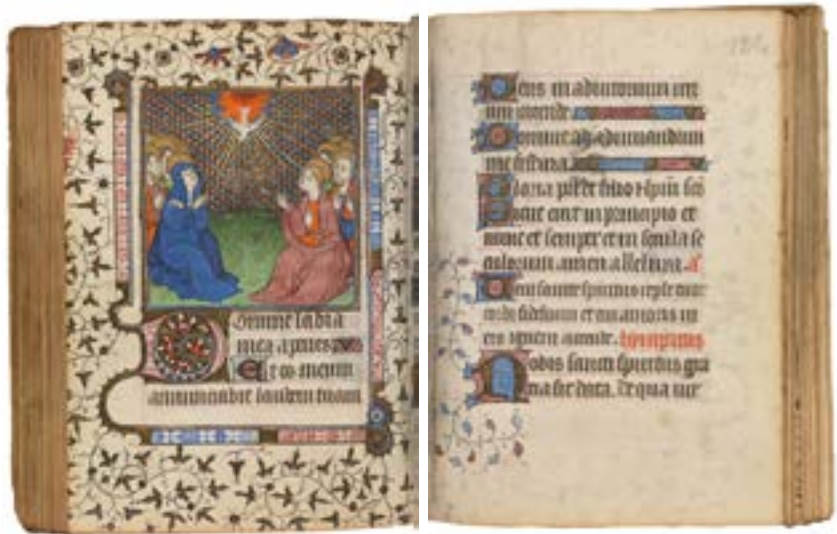 Domine labia
mea aperies
Et os meum
annunciabit laudem tuam
Deus in adiutorium me
um intende
Domine ad adiuuandum
me festina
Gloria patri et filio et spiritui sco
Sicut erat in principio et
nunc et semper et in secula se
culorum amen alleluia. a
Ueni sancte spiritus reple tuor
corda fidelium et tui amoris in
eis ignem accende. hympnus
Nobis sancti spiritus gra
tia sit data. De qua uir